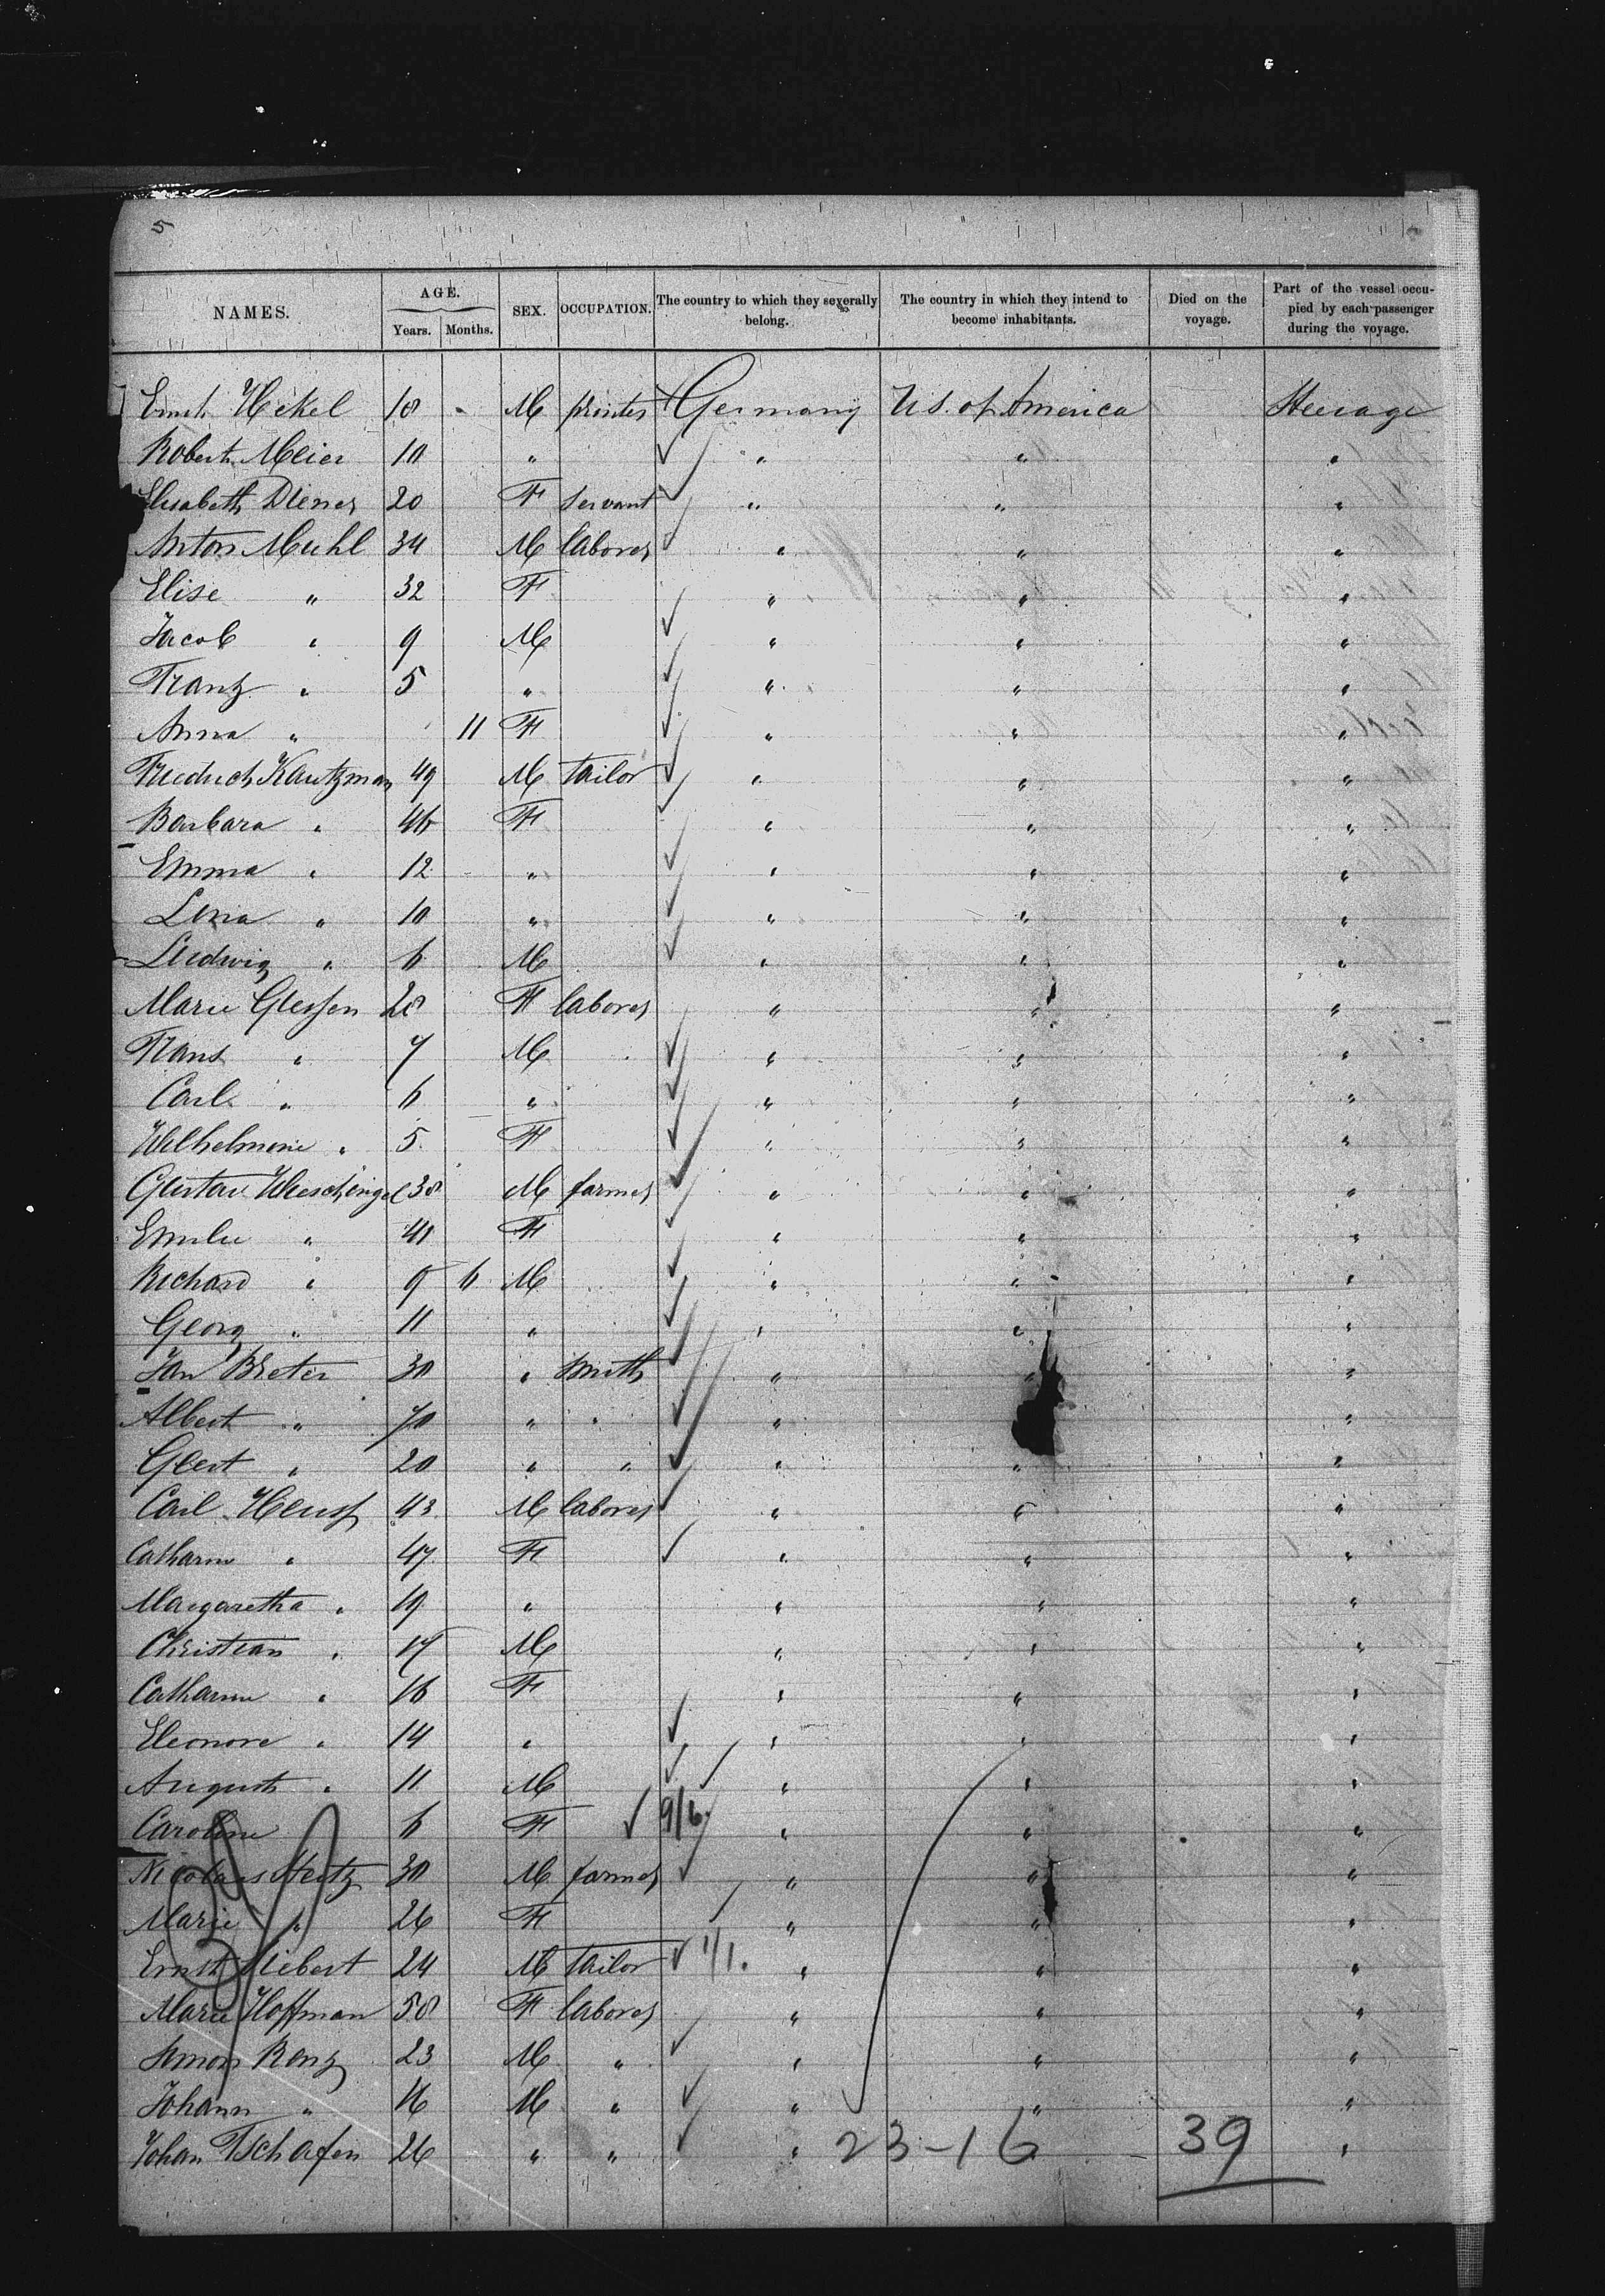 5
NAMES. AGE. Years. Months. SEX. OCCUPATION. The country to which they severally belong. The country in which they intend to become inhabitants. Died on the voyage. Part of the vessel occupied by each passenger during the voyage.
Hekel 18 M printer Germany U.S. of America Steerage
Robert Meier 10 " " " "
Elisabeth Diener 20 F servant " " "
Anton Muhl 34 M laborer " " "
Elise " 32 F " " "
Jacob " 9 M " " "
Franz " 5 " " " "
Anna " 11 F " " "
Friedrich Klautzman 49 M tailor " " "
Barbara " 46 F " " "
Emma " 12 " " " "
Lena " 10 " " " "
Ludwig " 6 M " " "
Marie 28 F laborer " " "
Frans " 7 M " " "
Carl " 6 " " " "
Wilhelmine " 5 F " " "
Gustav 38 M farmer " " "
Emilie " 41 F " " "
Richard " 9 6 M " " "
Georg " 11 " " " "
Jan Breter 30 " smith " " "
Albert " 70 " " " " "
Geert " 20 " " " " "
Carl 43 M laborer " " "
Catharine " 47 F " " "
Margaretha " 19 " " " "
Christian " 17 M " " "
Catharine " 16 F " " "
Eleonore " 14 " " " "
August " 11 M " " "
Caroline 6 F 9/6 " " "
Nicolaus Hertz 30 M farmer " " "
Marie " 26 F " " "
Ernst Liebert 24 M tailor 1/1. " " "
Marie Hoffman 58 F laborer " " "
Simon Renz 23 M " " " "
Johann " 16 M " " " "
Johan Tschafen 26 " " " 23-16 39 "